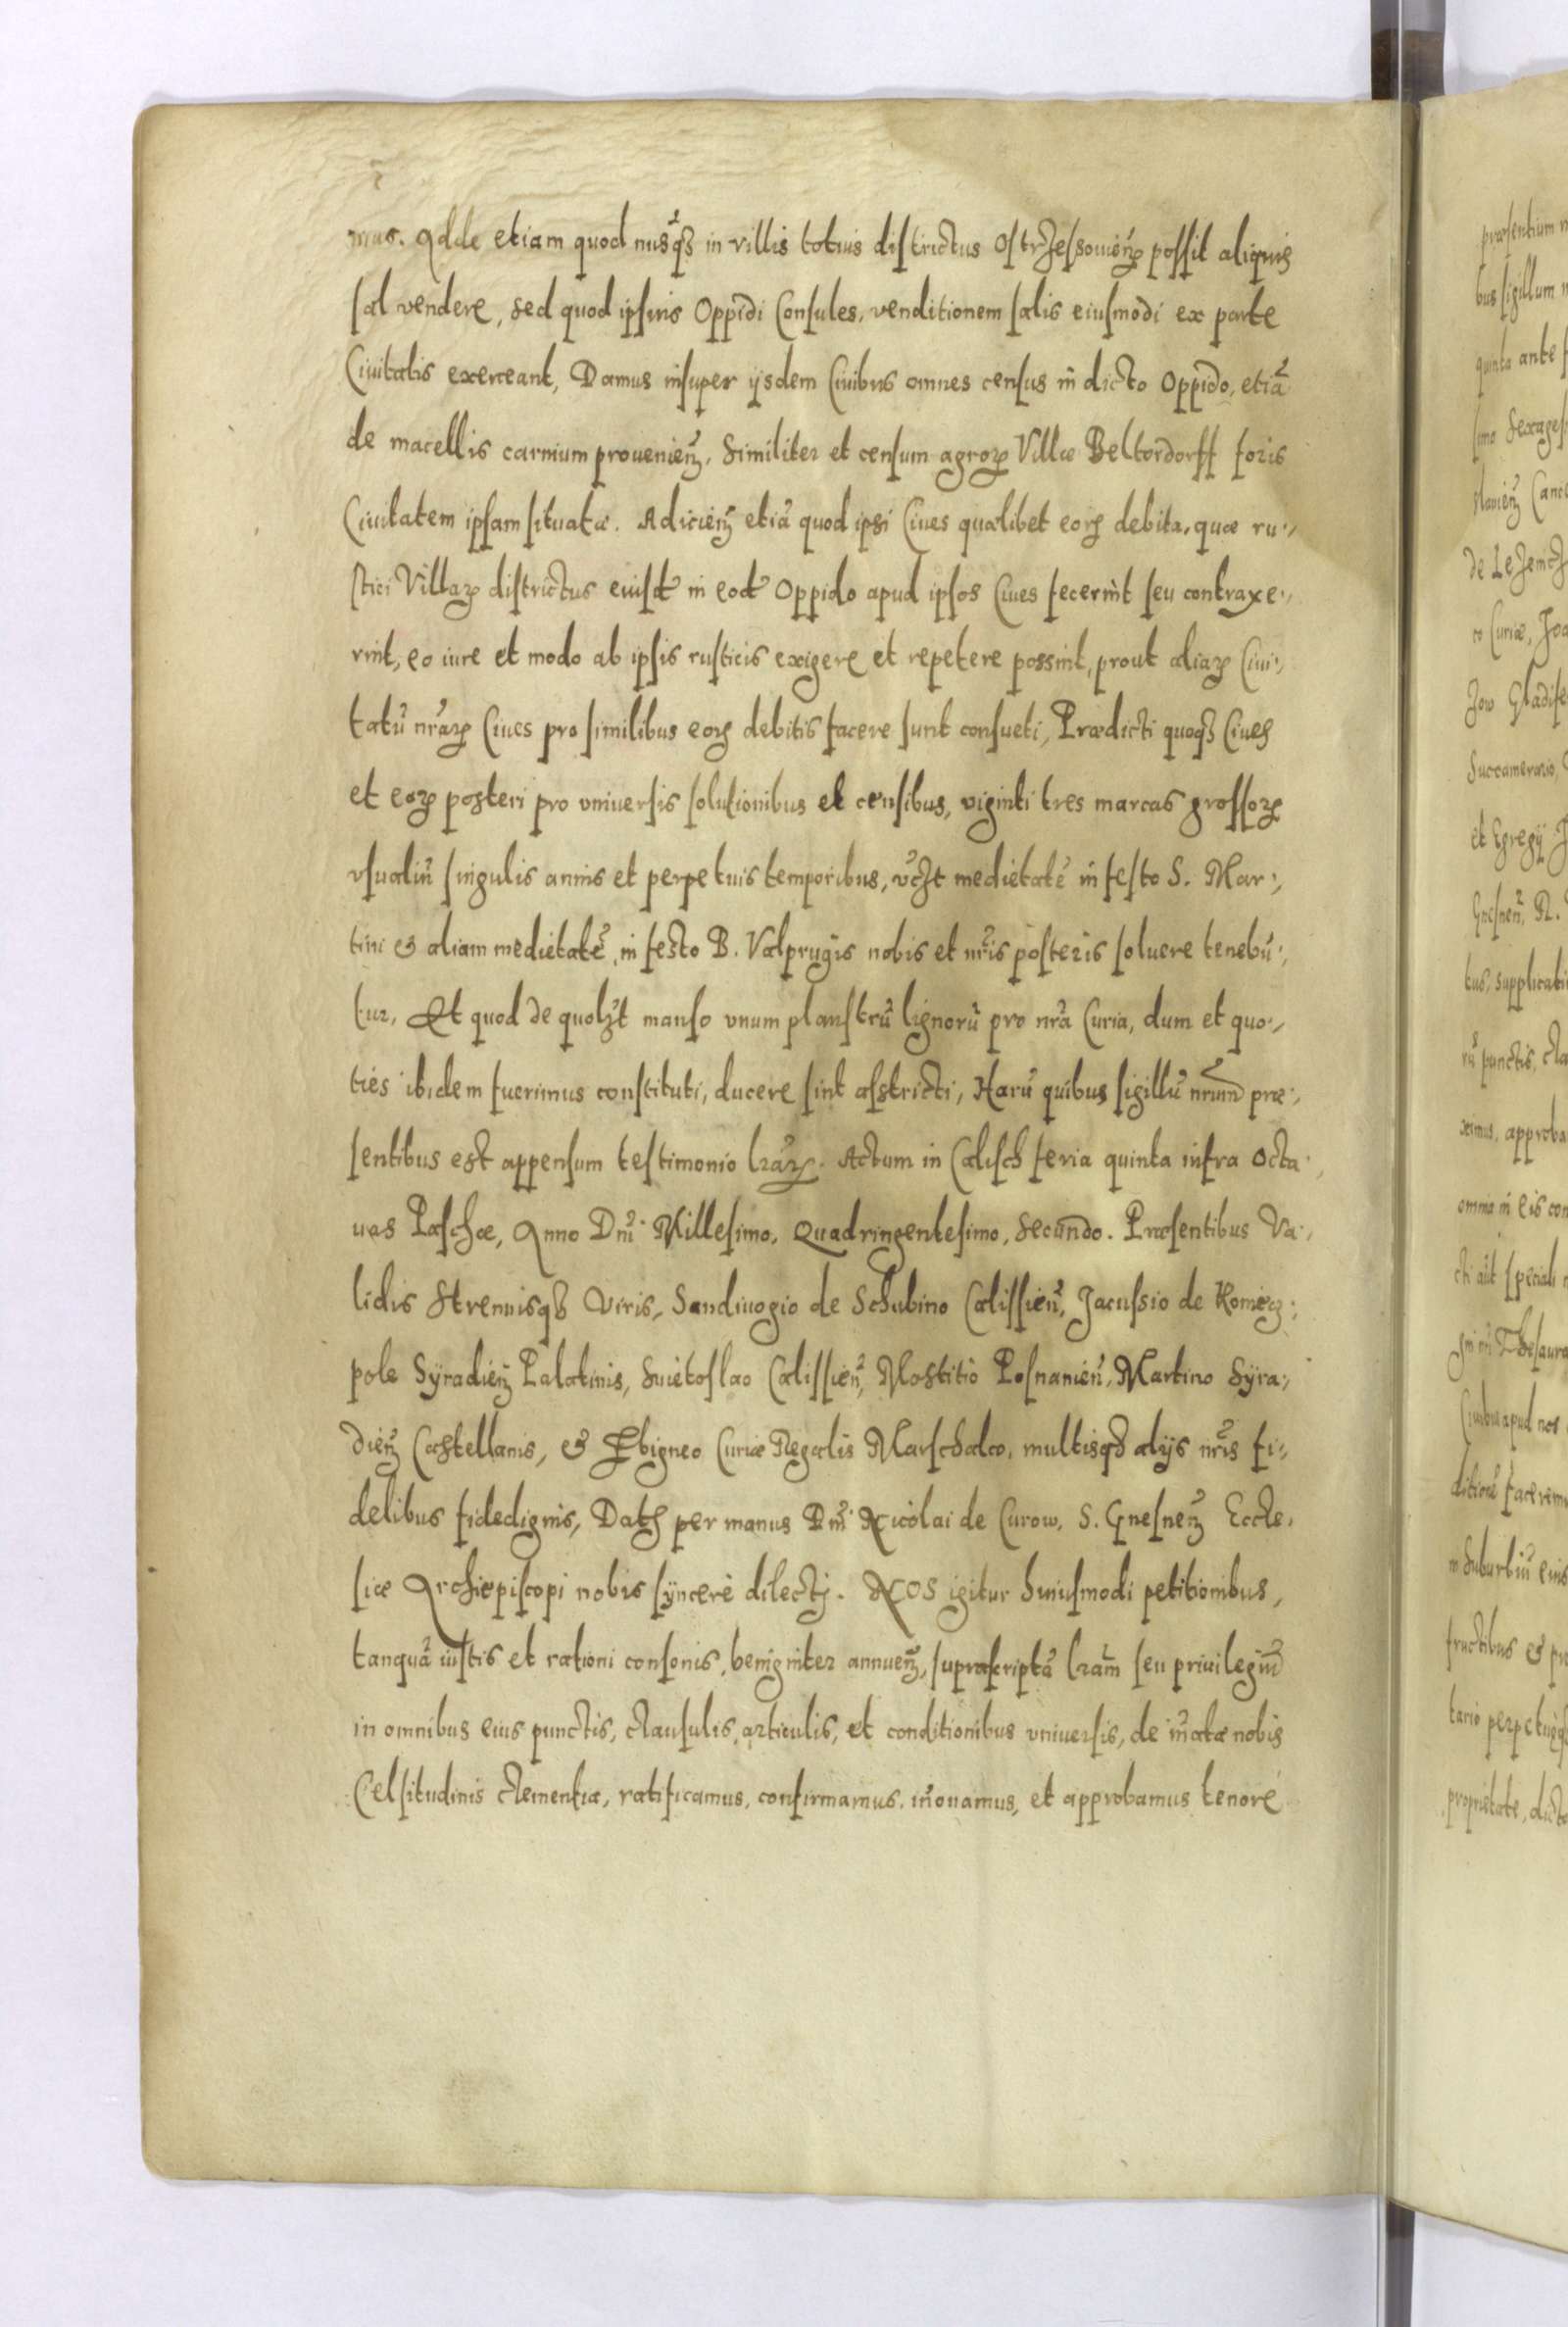 mus. Adde etiam quod nusq̃ꝫ in villis totius districtus Ostrzessouień possit aliquis
sal vendere, sed quod ipsius Oppidi Consules, venditionem salis eiusmodi ex parte
Ciuitatis exerceant, Damus insuper ijsdem Ciuibus omnes census in dicto Oppido, etiã
de macellis carnium prouenieñ, Similiter et censum agroꝝ Villæ Beltordorff foris
Ciuitatem ipsam situatæ. Adicieñ etiã quod ipsi Ciues quælibet eoꝝ debita, quæ ru-
stici Villaꝝ districtus eiusđ in eođ Oppido apud ipsos Ciues fecerint seu contraxe-
rint, eo iure et modo ab ipsis rusticis exigere et repetere possint, prout aliaꝝ Ciui-
tatũ nr̃aꝝ Ciues pro similibus eoꝝ debitis facere sunt consueti, Prædicti quoqꝫ Ciues
et eoꝝ posteri pro vniuersis solutionibus et censibus, viginti tres marcas grossoꝝ
vsualiũ singulis annis et perpetuis temporibus, vczt medietatẽ in festo S. Mar-
tini & aliam medietatẽ, in festo B. Valprugis nobis et nr̃is posteris soluere tenebũ-
tur, Et quod de quolꝫt manso vnum plaustrũ lignorũ pro nr̃a Curia, dum et quo-
ties ibidem fuerimus constituti, ducere sint astricti, Harũ quibus sigillũ nrũm præ-
sentibus est appensum testimonio lr̃aꝝ. Actum in Calisch feria quinta infra Octa-
uas Paschæ, Anno Dñi Millesimo, Quadringentesimo, Secundo. Præsentibus Va-
lidis Strenuisqꝫ Viris, Sandiuogio de Schubino Calissień, Jacussio de Koniecz-
pole Syradień Palatinis, Swietoslao Calissień, Mostitio Posnanień, Martino Syra-
dień Castellanis, & Sbigneo Curiæ Regalis Marschalco, multisqꝫ alijs nr̃is fi-
delibus fidedignis, Datꝫ per manus Dñi Nicolai de Curow, S. Gnesneñ Eccłe-
siæ Archiepiscopi nobis syncerè dilectj. NOS igitur huiusmodi petitionibus,
tanquã iustis et rationi consonis, benigniter annueñ, suprascriptã lr̃am seu priuilegiũ
in omnibus eius punctis, clausulis, articulis, et conditionibus vniuersis, de iñata nobis
Celsitudinis clementia, ratificamus, confirmamus, iñouamus, et approbamus tenorẽ